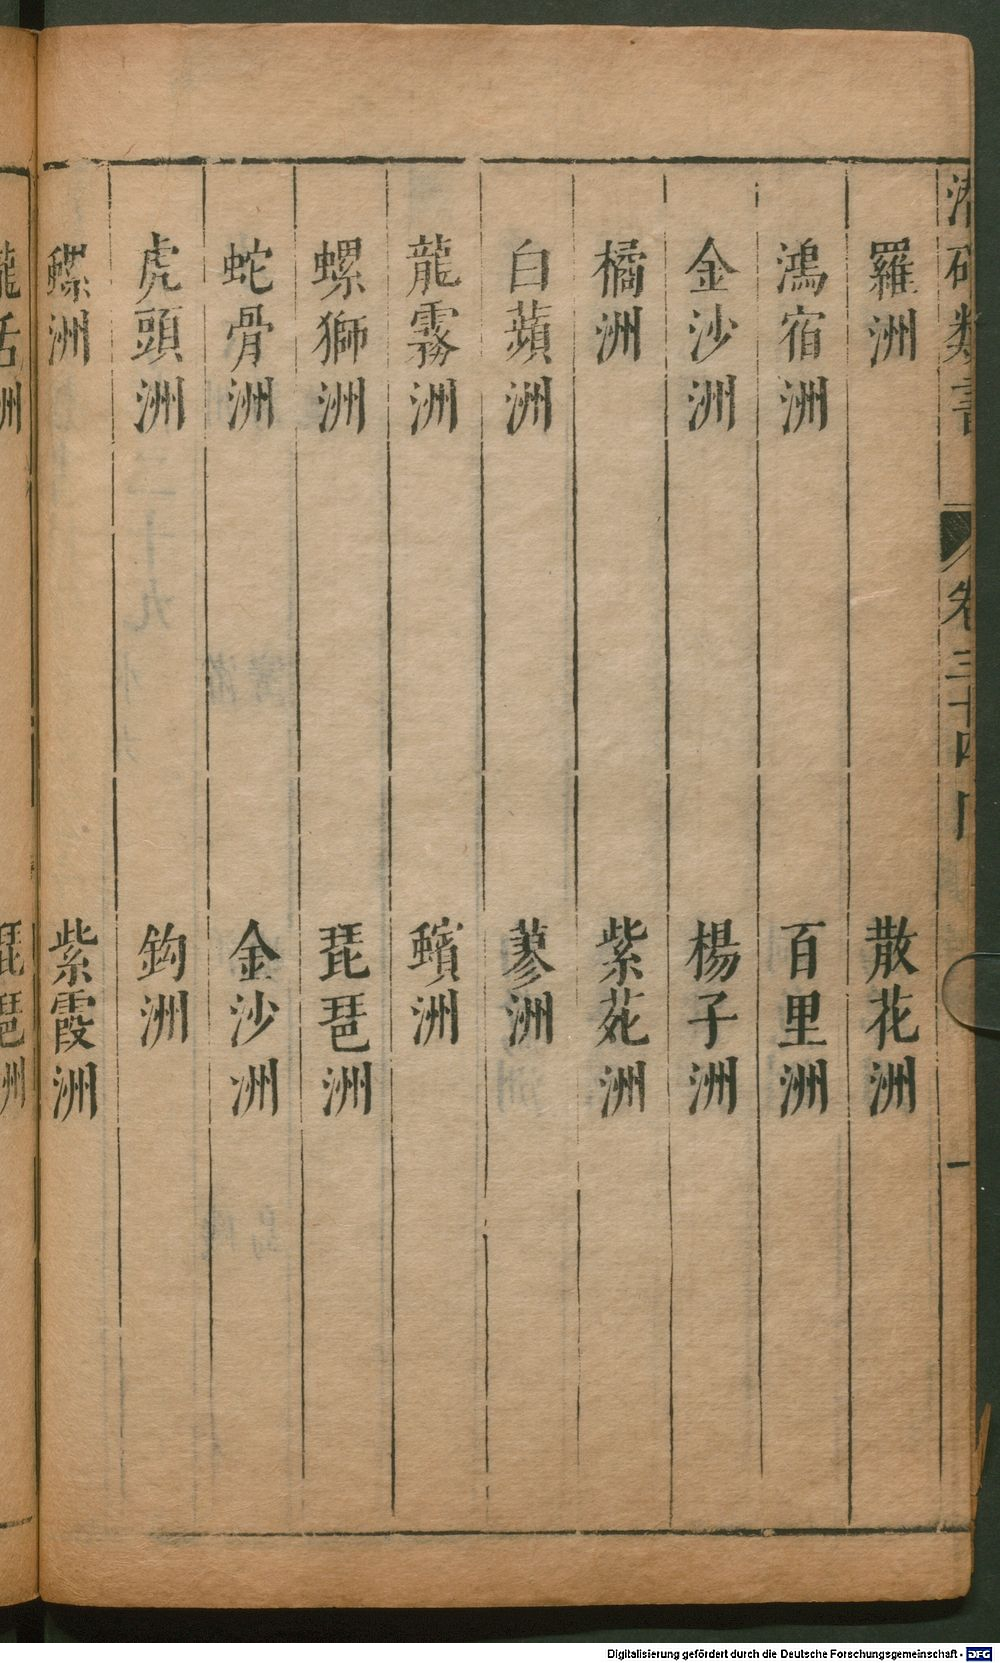 潛確類書 卷三十四
羅洲 散花洲
鴻宿洲 百里洲
金沙洲 楊子洲
橘洲 紫苑洲
白蘋洲 蓼洲
龍霧洲 蠙洲
螺獅洲 琵琶洲
蛇骨洲 金沙洲
虎頭洲 鈎洲
洲 紫霞洲
琵琶洲
Digitalisierung gefördert durch die Deutsche Forschungsgemeinschaft - DFG